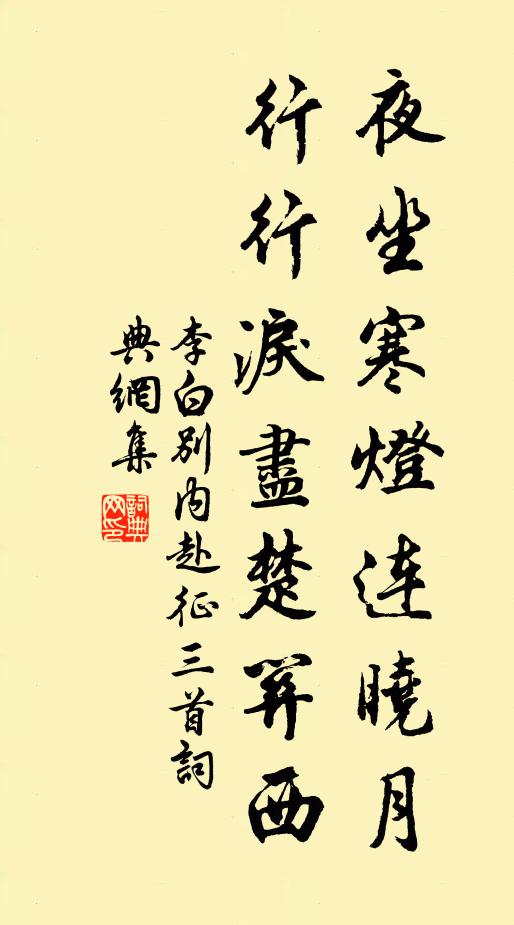 夜坐寒燈连曉月
行行淚盡楚関西
李白别内赴征三首詞
典網集
詞典網印